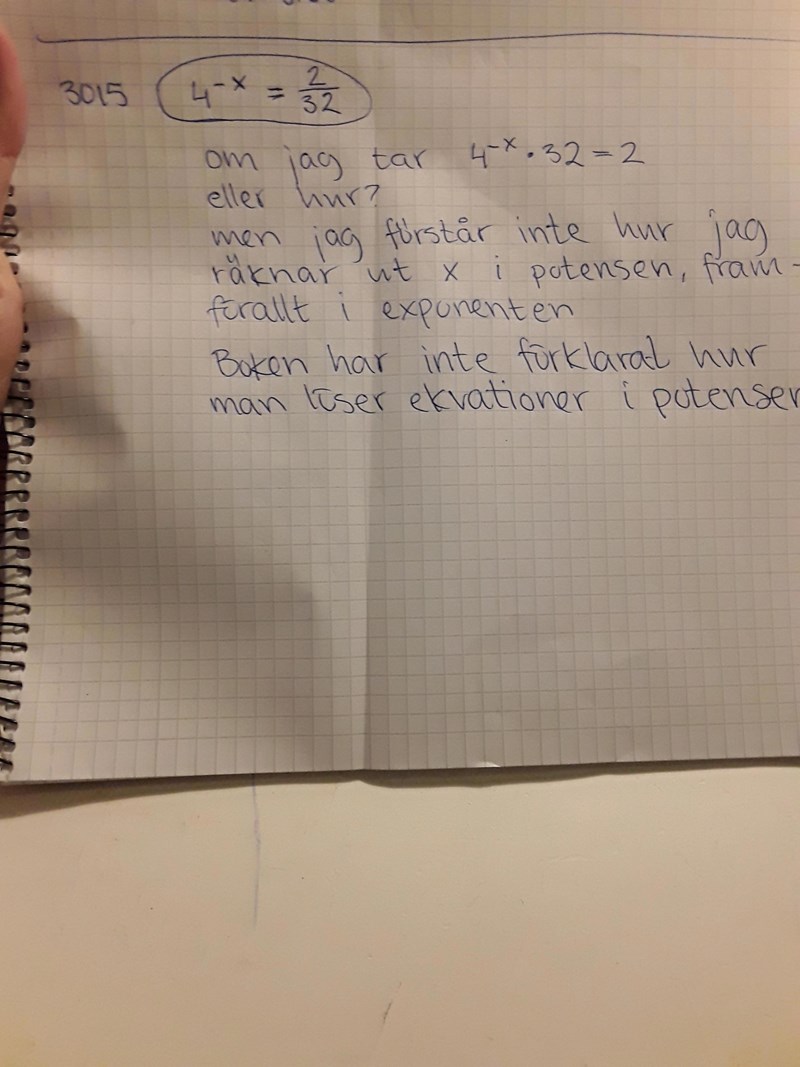 3015 4⁻ˣ = 2/32
om jag tar 4⁻ˣ · 32 = 2
eller hur?
men jag förstår inte hur jag
räknar ut x i potensen, fram-
förallt i exponenten
Boken har inte förklarat hur
man löser ekvationer i potenser